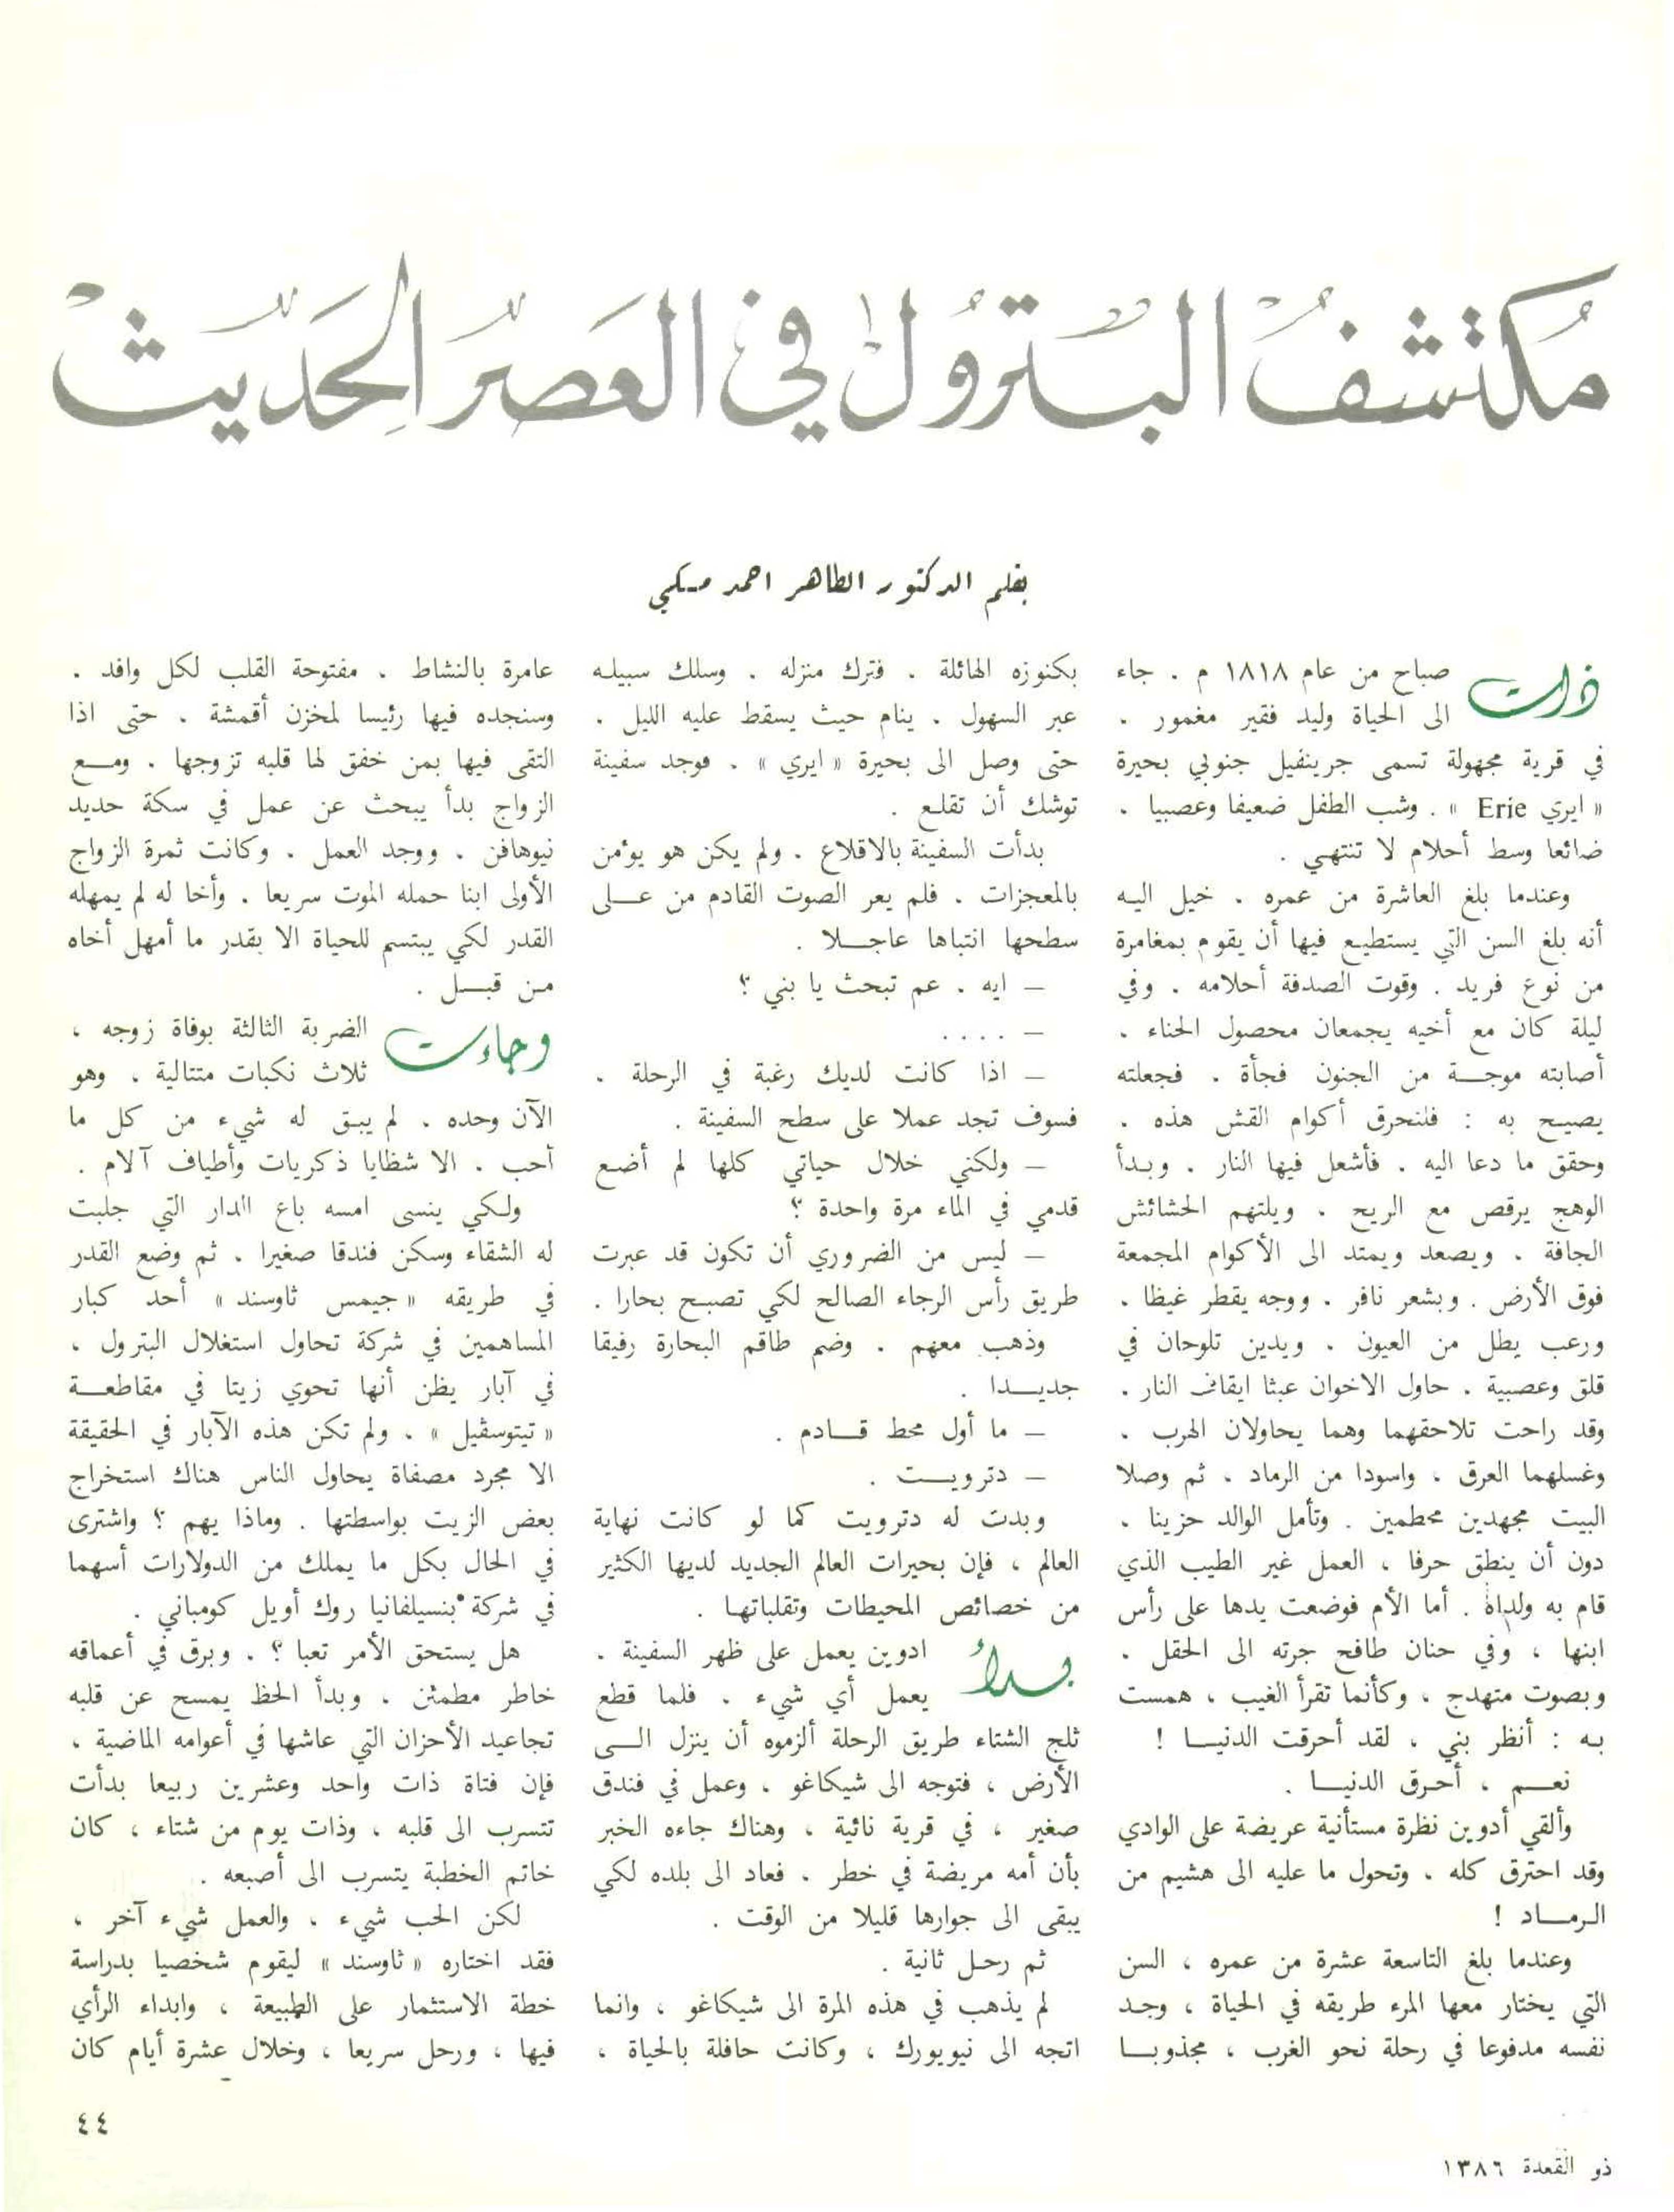 مكتشف البترول في العصر الحديث
بقلم الدكتور الطاهر احمد مكي
ذات صباح من عام ١٨١٨ م . جاء
الى الحياة وليد فقير مغمور .
في قرية مجهولة تسمى جرينفيل جنوبي بحيرة
« ايري Erie » . وشب الطفل ضعيفا وعصبيا .
ضائعا وسط أحلام لا تنتهي .
وعندما بلغ العاشرة من عمره . خيل اليه
أنه بلغ السن التي يستطيع فيها أن يقوم بمغامرة
من نوع فريد . وقوت الصدفة أحلامه . وفي
ليلة كان مع أخيه يجمعان محصول الحناء .
أصابته موجـــة من الجنون فجأة . فجعلته
يصيح به : فلنحرق أكوام القش هذه .
وحقق ما دعا اليه . فأشعل فيها النار . وبدأ
الوهج يرقص مع الريح . ويلتهم الحشائش
الجافة . ويصعد ويمتد الى الأكوام المجمعة
فوق الأرض . وبشعر نافر . ووجه يقطر غيظا .
ورعب يطل من العيون . ويدين تلوحان في
قلق وعصبية . حاول الاخوان عبثا ايقاف النار .
وقد راحت تلاحقهما وهما يحاولان الهرب .
وغسلهما العرق ، واسودا من الرماد . ثم وصلا
البيت مجهدين محطمين . وتأمل الوالد حزينا .
دون أن ينطق حرفا ، العمل غير الطيب الذي
قام به ولداه . أما الأم فوضعت يدها على رأس
ابنها ، وفي حنان طافح جرته الى الحقل .
وبصوت متهدج ، وكأنما تقرأ الغيب ، همست
به : أنظر بني ، لقد أحرقت الدنيـــا !
نعـــم ، أحرق الدنيـــا .
وألقي أدوين نظرة مستأنية عريضة على الوادي
وقد احترق كله ، وتحول ما عليه الى هشيم من
الرمـــاد !
وعندما بلغ التاسعة عشرة من عمره ، السن
التي يختار معها المرء طريقه في الحياة ، وجد
نفسه مدفوعا في رحلة نحو الغرب ، مجذوبـــا
بكنوزه الهائلة . فترك منزله . وسلك سبيله
عبر السهول . ينام حيث يسقط عليه الليل .
حتى وصل الى بحيرة « ايري » . فوجد سفينة
توشك أن تقلع .
بدأت السفينة بالاقلاع . ولم يكن هو يؤمن
بالمعجزات . فلم يعر الصوت القادم من عـــلى
سطحها انتباها عاجـــلا .
ـ ايه . عم تبحث يا بني ؟
ـ ....
ـ اذا كانت لديك رغبة في الرحلة .
فسوف تجد عملا على سطح السفينة .
ـ ولكني خلال حياتي كلها لم أضع
قدمي في الماء مرة واحدة ؟
ـ ليس من الضروري أن تكون قد عبرت
طريق رأس الرجاء الصالح لكي تصبح بحارا .
وذهب معهم . وضم طاقم البحارة رفيقا
جديـــدا .
ـ ما أول محط قـــادم .
ـ دترويـــت .
وبدت له دترويت كما لو كانت نهاية
العالم ، فإن بحيرات العالم الجديد لديها الكثير
من خصائص المحيطات وتقلباتها .
بدأ ادوين يعمل على ظهر السفينة .
يعمل أي شيء . فلما قطع
ثلج الشتاء طريق الرحلة ألزموه أن ينزل الـــى
الأرض ، فتوجه الى شيكاغو ، وعمل في فندق
صغير ، في قرية نائية ، وهناك جاءه الخبر
بأن أمه مريضة في خطر . فعاد الى بلده لكي
يبقى الى جوارها قليلا من الوقت .
ثم رحل ثانية .
لم يذهب في هذه المرة الى شيكاغو ، وانما
اتجه الى نيويورك ، وكانت حافلة بالحياة ،
عامرة بالنشاط . مفتوحة القلب لكل وافد .
وسنجده فيها رئيسا لمخزن أقمشة . حتى اذا
التقى فيها بمن خفق لها قلبه تزوجها . ومـــع
الزواج بدأ يبحث عن عمل في سكة حديد
نيوهافن . ووجد العمل . وكانت ثمرة الزواج
الأولى ابنا حمله الموت سريعا . وأخا له لم يمهله
القدر لكي يبتسم للحياة الا بقدر ما أمهل أخاه
من قبـــل .
وجاءت الضربة الثالثة بوفاة زوجه ،
ثلاث نكبات متتالية . وهو
الآن وحده . لم يبق له شيء من كل ما
أحب . الا شظايا ذكريات وأطياف آلام .
ولكي ينسى امسه باع الدار التي جلبت
له الشقاء وسكن فندقا صغيرا . ثم وضع القدر
في طريقه « جيمس ثاوسند » أحد كبار
المساهمين في شركة تحاول استغلال البترول ،
في آبار يظن أنها تحوي زيتا في مقاطعـــة
« تيتوسڤيل » . ولم تكن هذه الآبار في الحقيقة
الا مجرد مصفاة يحاول الناس هناك استخراج
بعض الزيت بواسطتها . وماذا يهم ؟ واشترى
في الحال بكل ما يملك من الدولارات أسهما
في شركة بنسيلفانيا روك أويل كومباني .
هل يستحق الأمر تعبا ؟ . وبرق في أعماقه
خاطر مطمئن . وبدأ الحظ يمسح عن قلبه
تجاعيد الأحزان التي عاشها في أعوامه الماضية ،
فإن فتاة ذات واحد وعشرين ربيعا بدأت
تتسرب الى قلبه ، وذات يوم من شتاء ، كان
خاتم الخطبة يتسرب الى أصبعه .
لكن الحب شيء ، والعمل شيء آخر ،
فقد اختاره « ثاوسند » ليقوم شخصيا بدراسة
خطة الاستثمار على الطبيعة ، وابداء الرأي
فيها ، ورحل سريعا ، وخلال عشرة أيام كان
٤٤
ذو القعدة ١٣٨٦